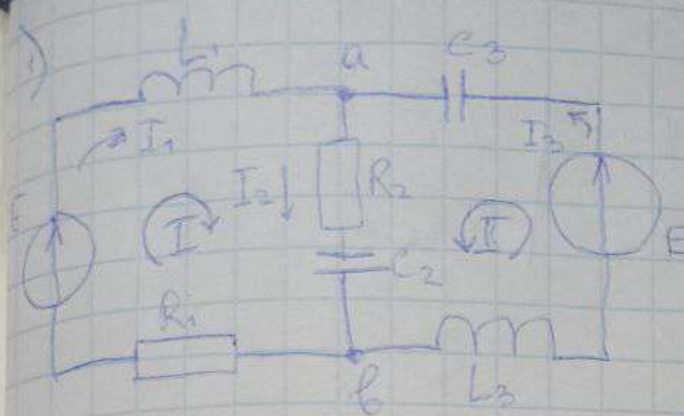 1)
L₁
a
C₃
I₁
I₃
E
I₂
R₂
I
II
E
C₂
R₁
в
L₃